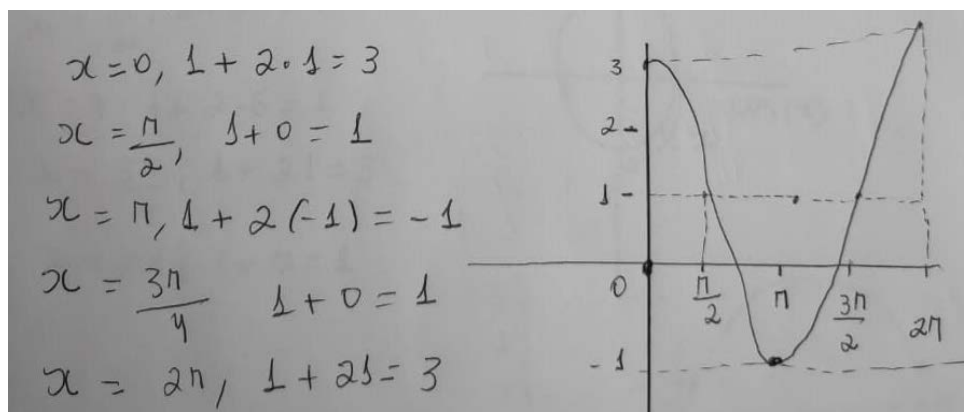 x = 0, 1 + 2 · 1 = 3
x = π/2, 1 + 0 = 1
x = π, 1 + 2 (-1) = -1
x = 3π/4 1 + 0 = 1
x = 2π, 1 + 21 = 3
3
2
1
0
π/2
π
3π/2
2π
-1